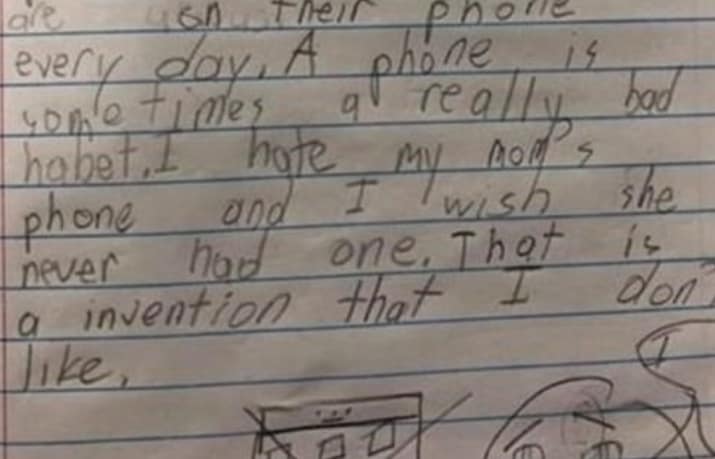 are on their phone
every day. A phone is
sometimes a really bad
habet. I hate my mom's
phone and I wish she
never had one. That is
a invention that I don't
like.
I